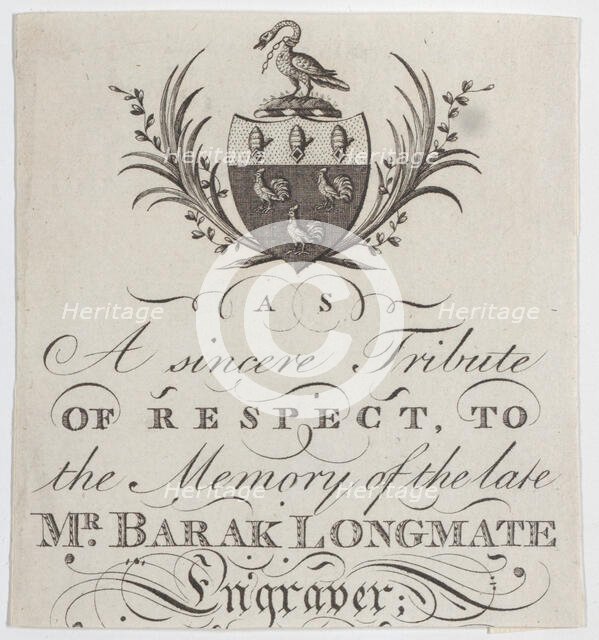 A S
A sincere Tribute
OF RESPECT, TO
the Memory of the late
MR. BARAK LONGMATE
Engraver;
Heritage Heritage
Heritage Heritage
Heritage Heritage